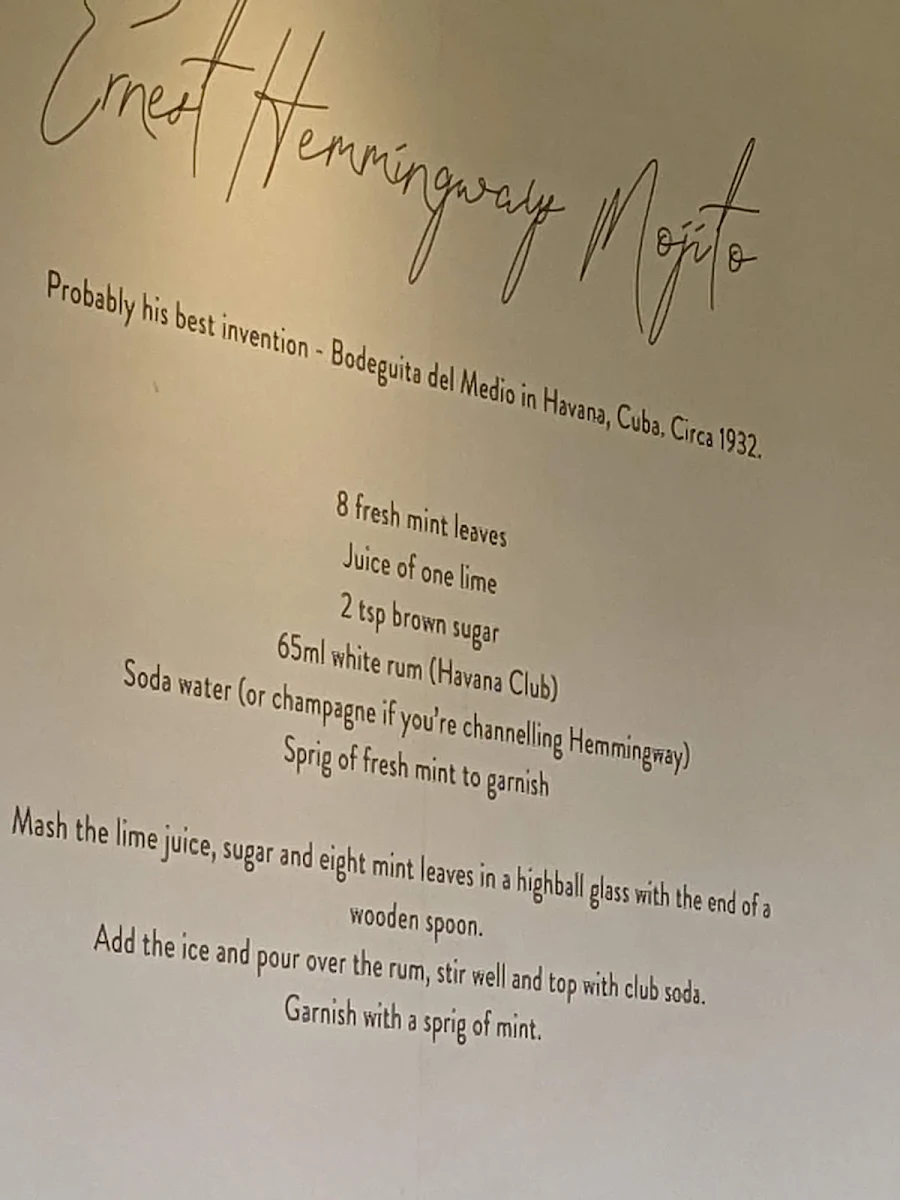 Ernest Hemmingway Mojito
Probably his best invention - Bodeguita del Medio in Havana, Cuba, Circa 1932.
8 fresh mint leaves
Juice of one lime
2 tsp brown sugar
65ml white rum (Havana Club)
Soda water (or champagne if you're channelling Hemmingway)
Sprig of fresh mint to garnish
Mash the lime juice, sugar and eight mint leaves in a highball glass with the end of a
wooden spoon.
Add the ice and pour over the rum, stir well and top with club soda.
Garnish with a sprig of mint.